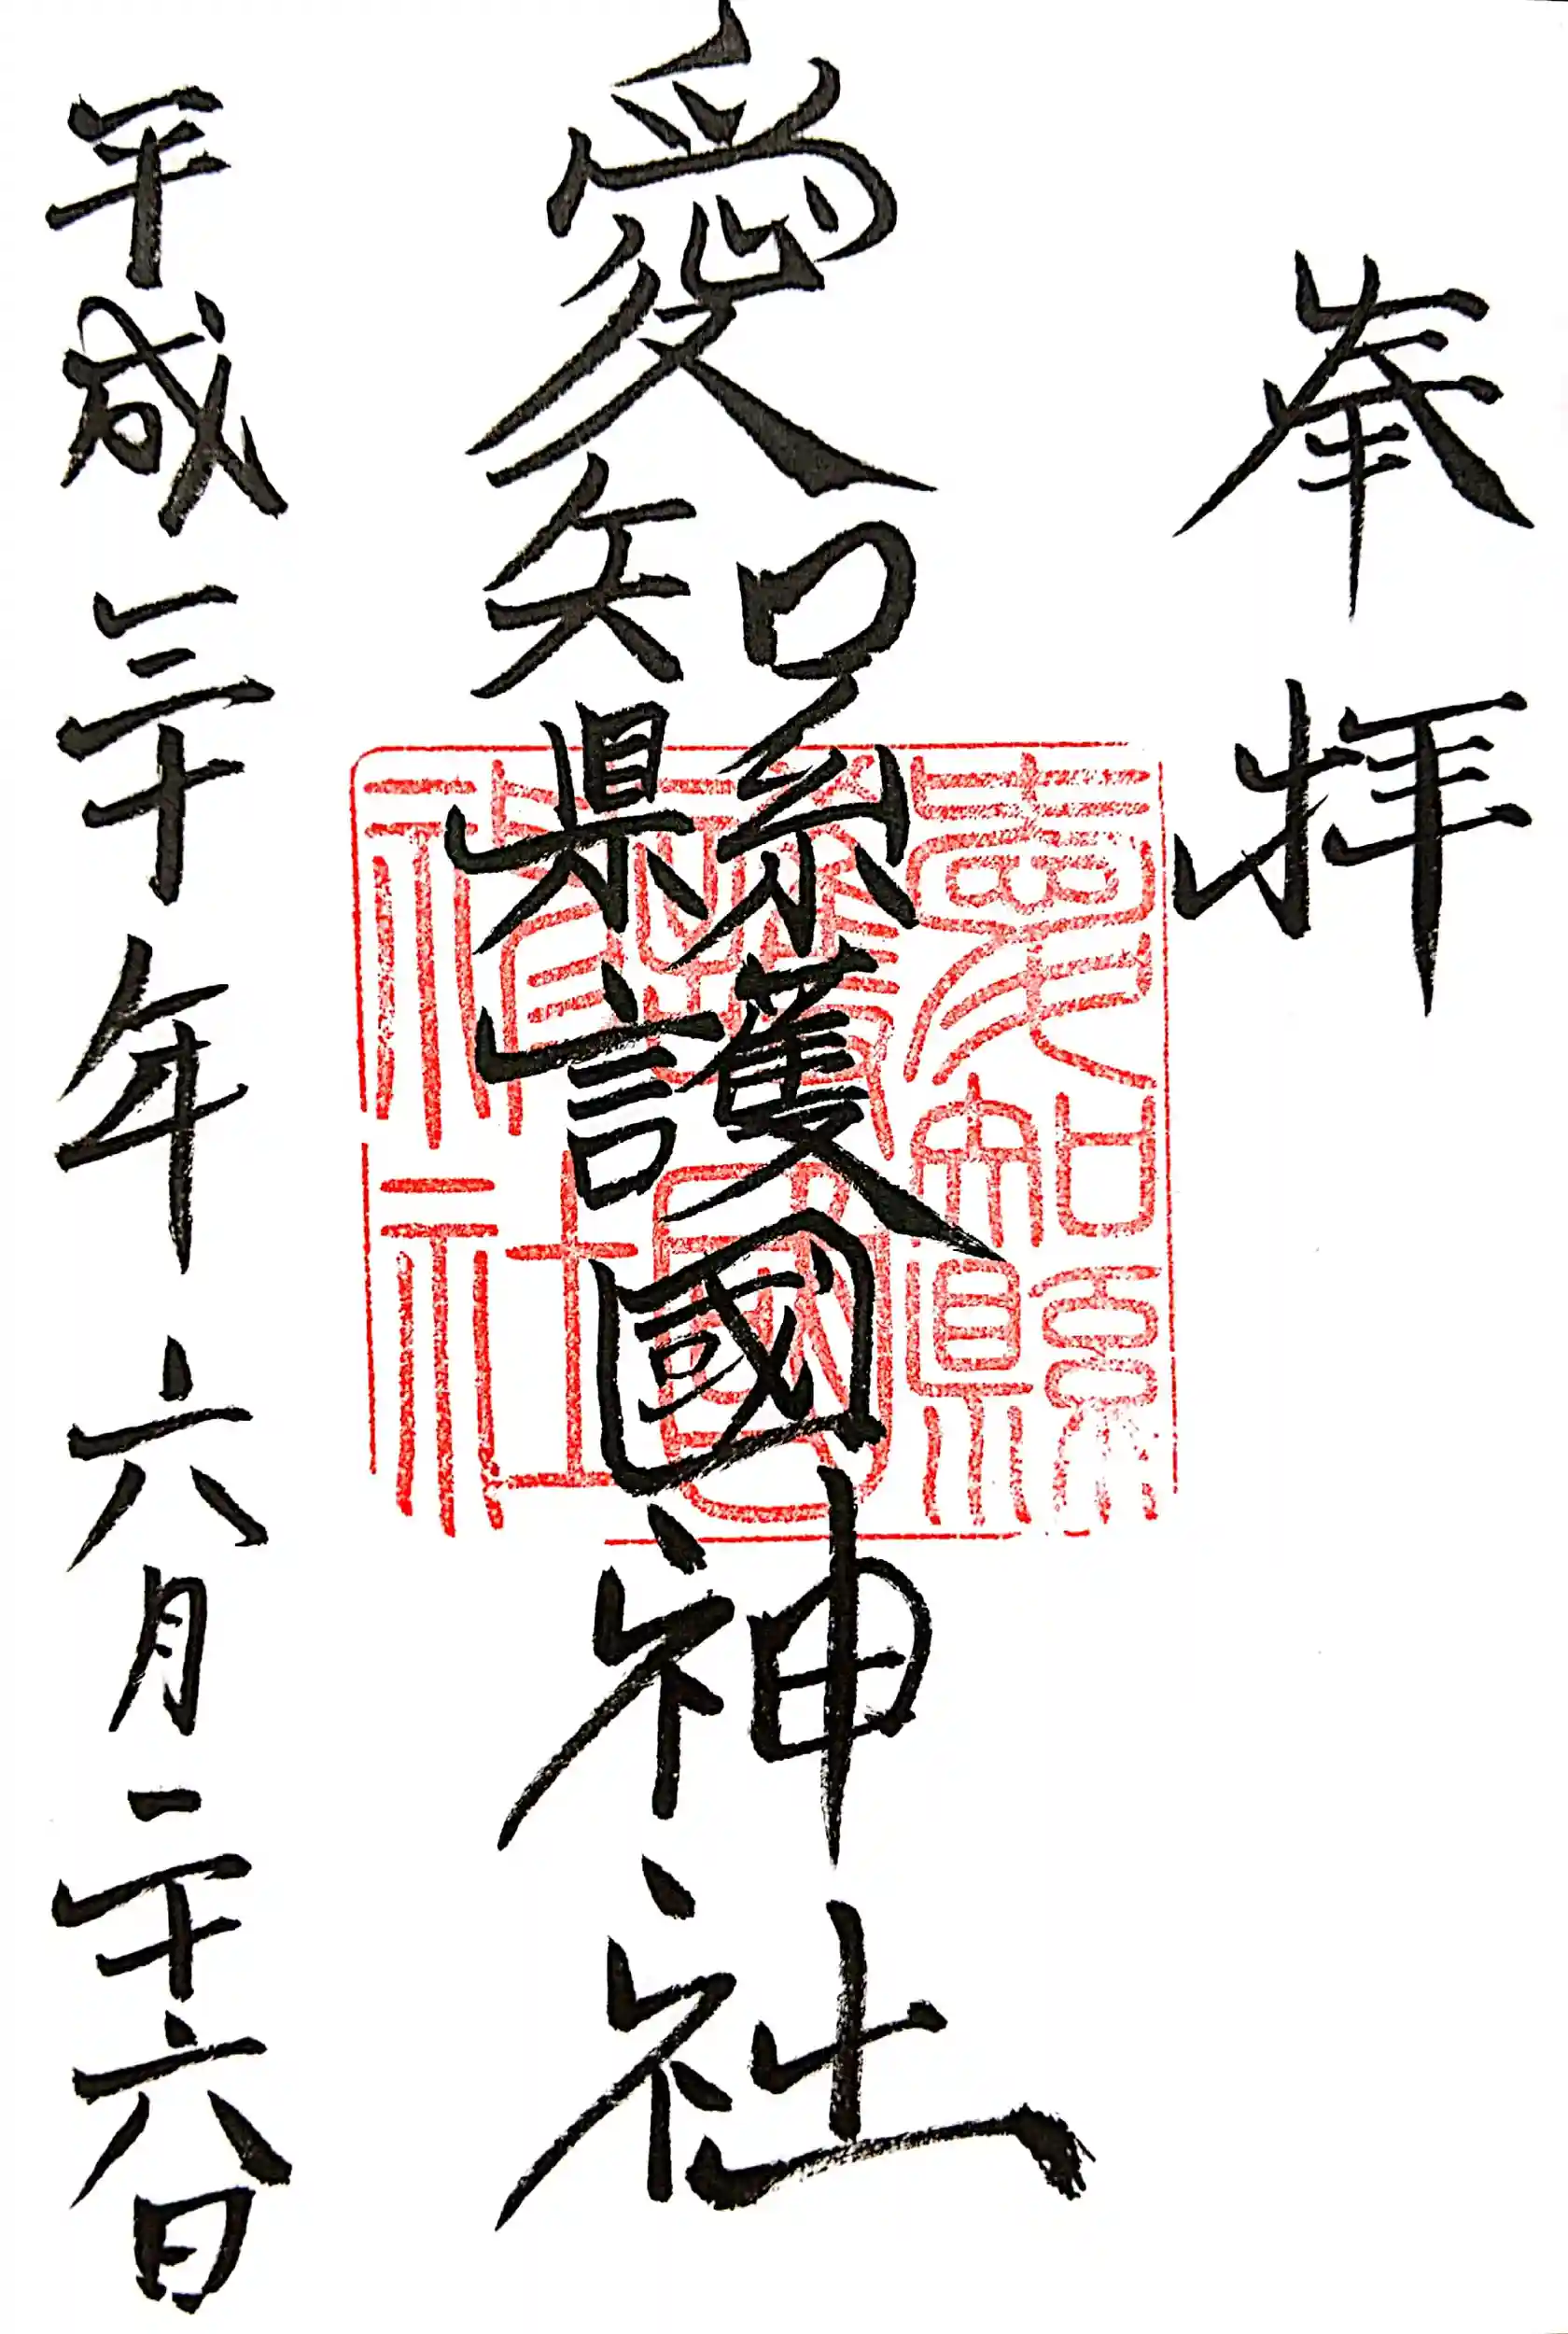 奉拝
愛知縣護國神社
愛知縣護國神社
平成三十年六月二十六日